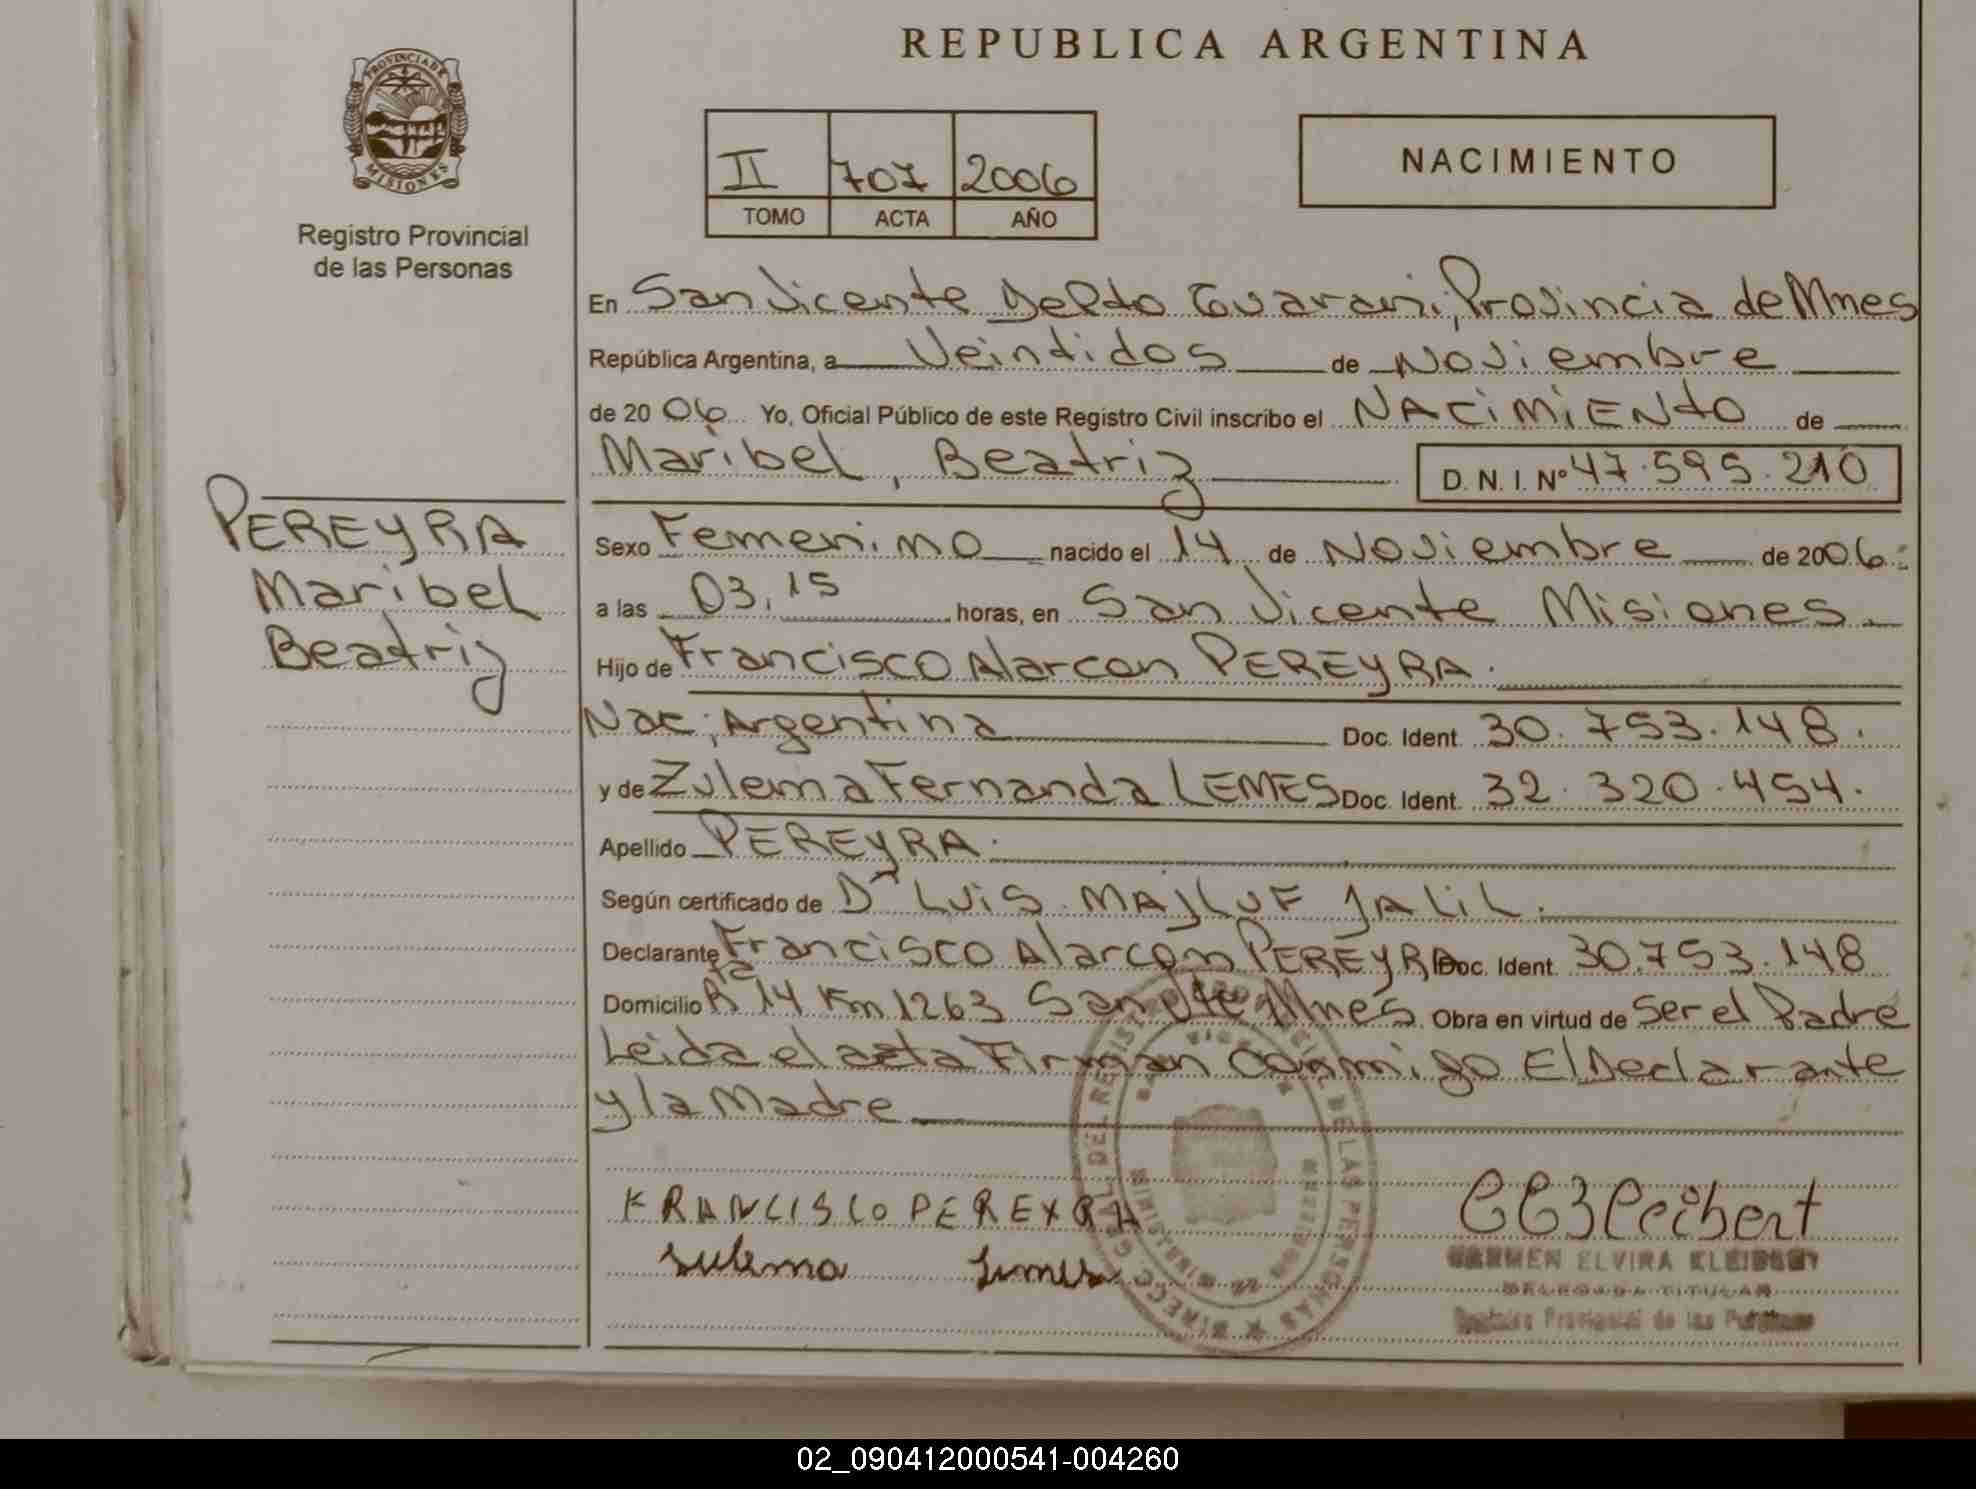 REPUBLICA ARGENTINA
PROVINCIA DE
MISIONES
Registro Provincial
de las Personas
II 707 2006
TOMO ACTA AÑO
NACIMIENTO
En San Vicente Depto Guarani, Provincia de Mnes
República Argentina, a Veintidos de Noviembre
de 2006 Yo, Oficial Público de este Registro Civil inscribo el NACIMIENTO de
Maribel, Beatriz D. N. I. Nº 47.595.210
PEREYRA
Maribel
Beatriz
Sexo Femenino nacido el 14 de Noviembre de 2006.
a las 03,15 horas, en San Vicente Misiones
Hijo de Francisco Alarcon PEREYRA.
Nac; Argentina Doc. Ident. 30.753.148.
y de Zulema Fernanda LEMES Doc. Ident. 32.320.454.
Apellido PEREYRA.
Según certificado de Dr LUIS MAJLUF JALIL.
Declarante Francisco Alarcon PEREYRA Doc. Ident. 30.753.148
Domicilio Rta 14 Km 1263 San Vte Mnes Obra en virtud de Ser el Padre
Leida el acta Firman conmigo El Declarante
y la Madre
FRANCISCO PEREYRA
Sulema Limes
CARMEN ELVIRA KLEIBERT
DELEGADA TITULAR
Registro Provincial de las Personas
DIRECC. GRAL. DEL REGISTRO PROV. DE LAS PERSONAS
SAN VICENTE
MISIONES
02_090412000541-004260